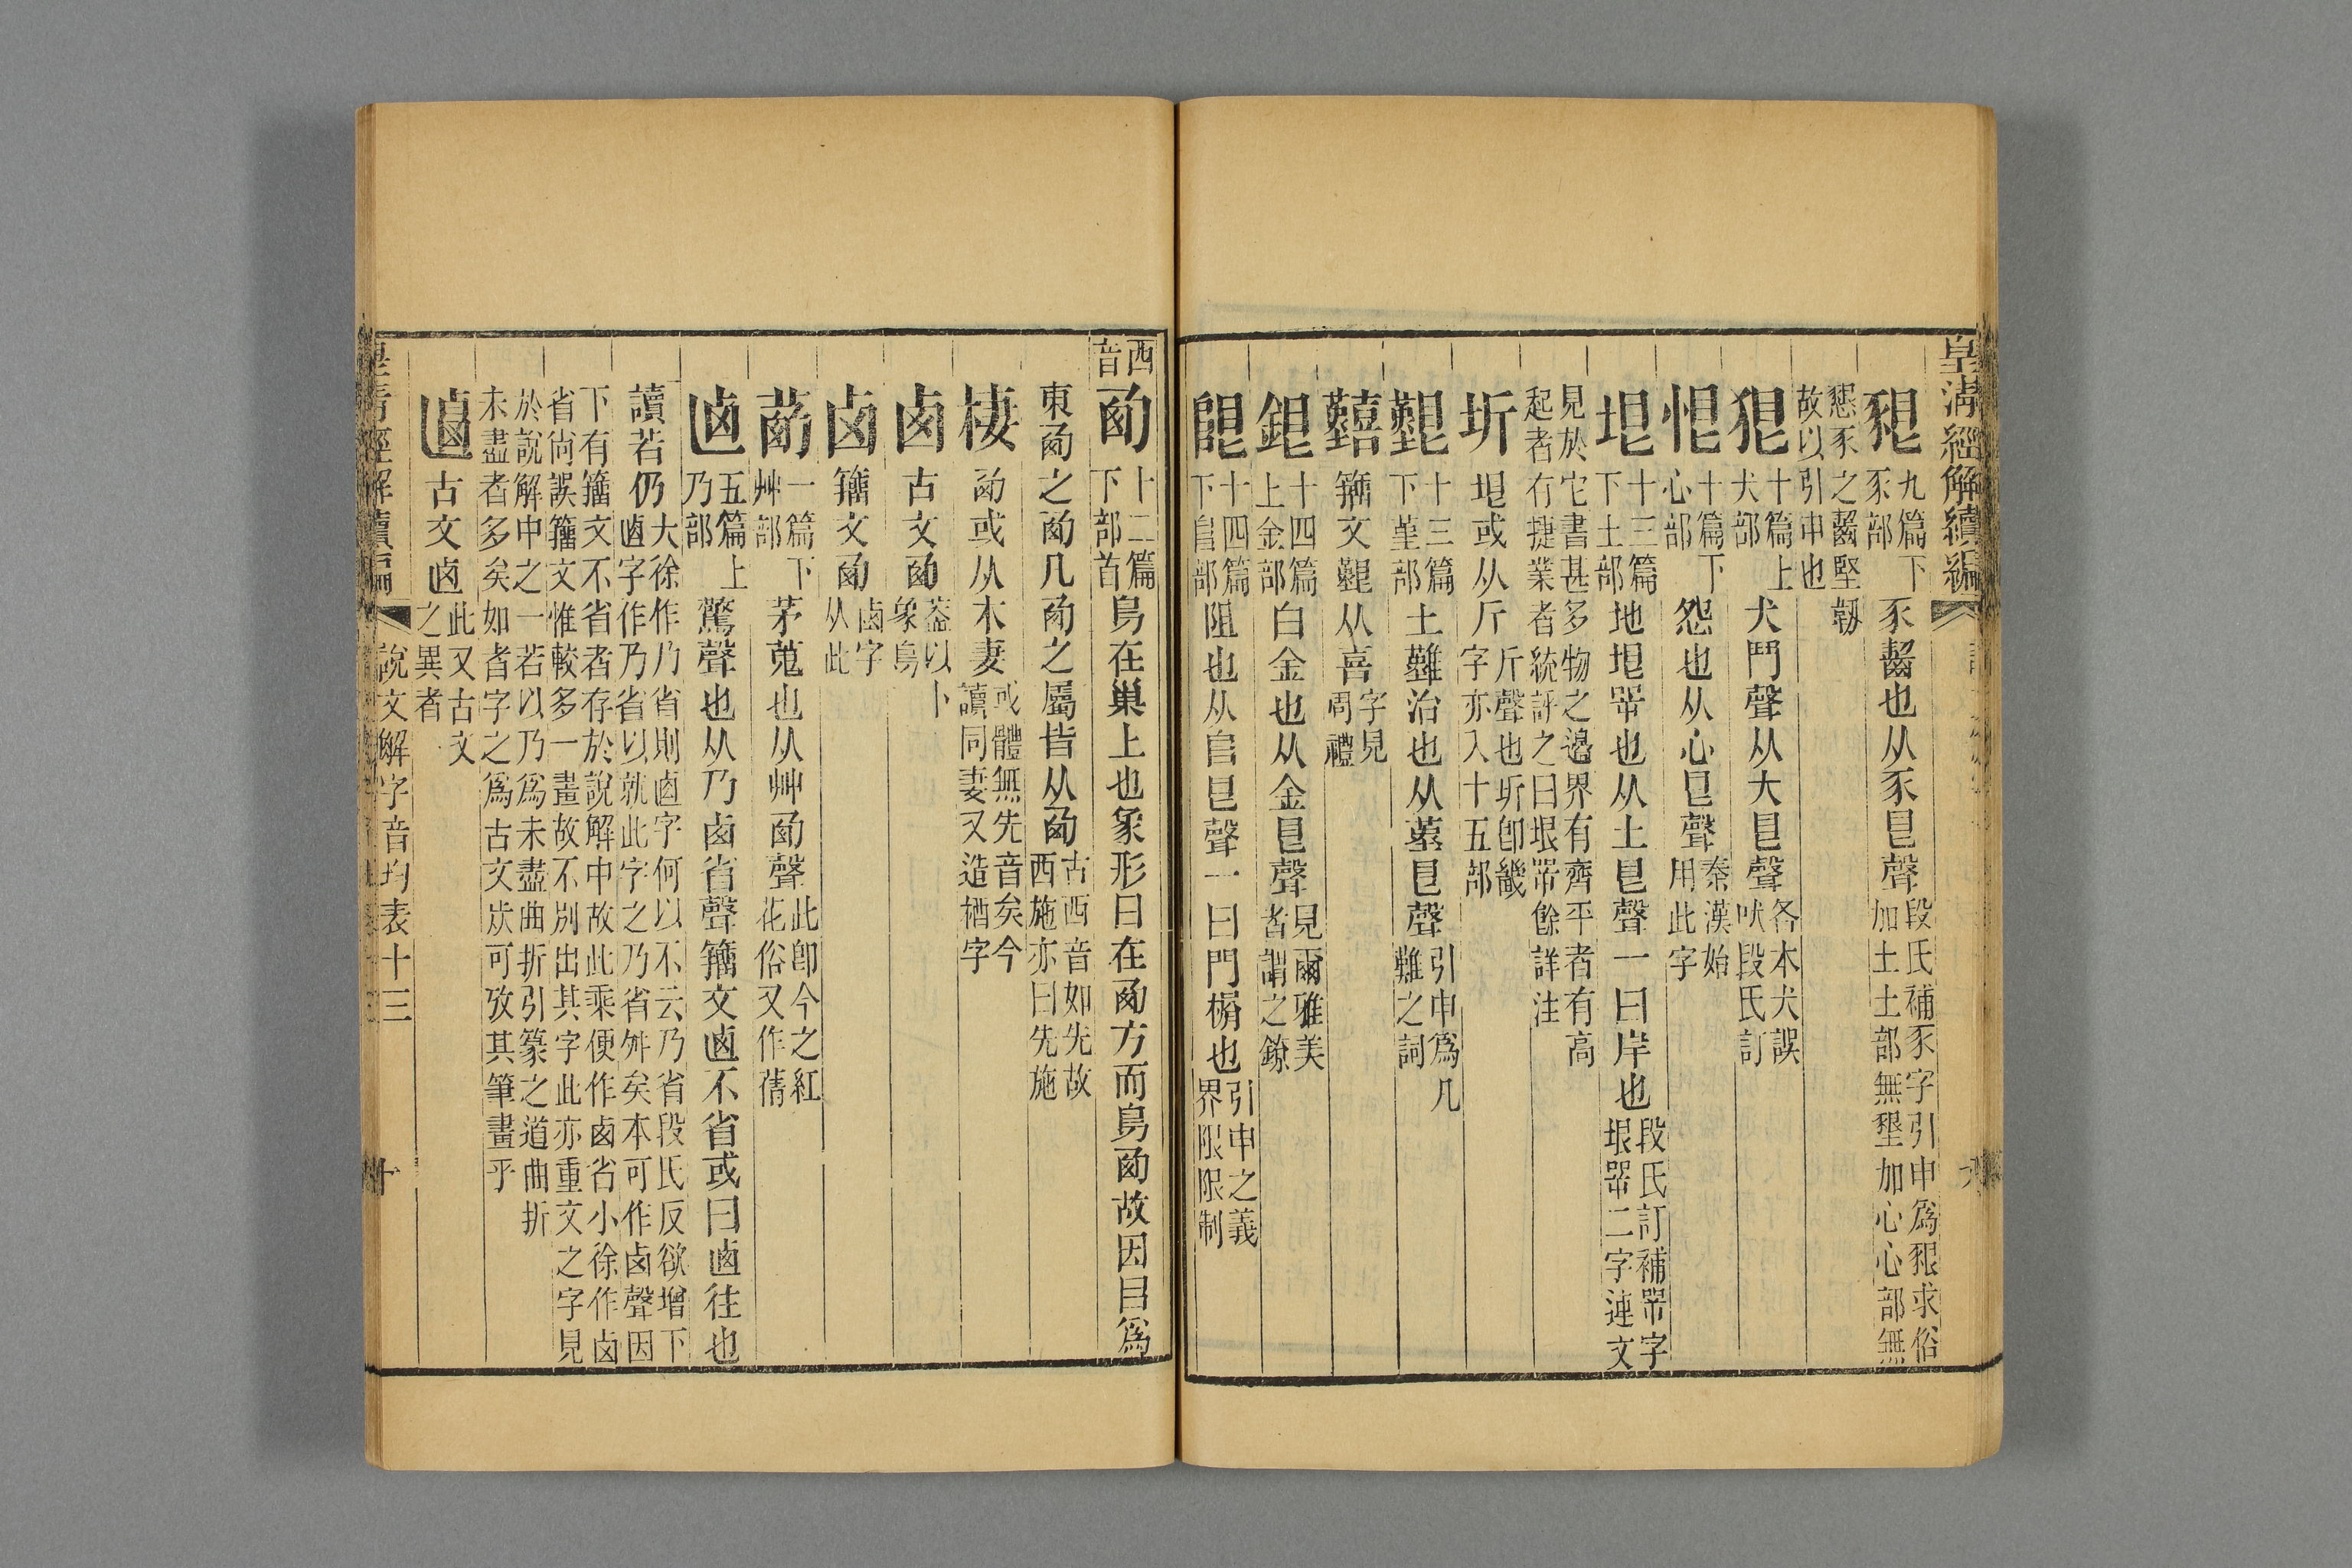 皇淸經解續編
豤 九篇下豕部 豕齧也从豕㫐聲 段氏補豕字引申爲豤求俗加土土部無墾加心心部無
懇豕之齧堅韌故以引申也
㹞 十篇上犬部 犬鬥聲从犬㫐聲 各本犬誤吠段氏訂
恨 十篇下心部 怨也从心㫐聲 秦漢始用此字
垠 十三篇下土部 地垠咢也从土㫐聲一曰岸也 段氏訂補咢字垠咢二字連文
見於它書甚多物之邉界有齊平者有高起者有捷業者統評之曰垠咢餘詳注
圻 垠或从斤 斤聲也圻卽畿字亦入十五部
艱 十三篇下堇部 土難治也从堇㫐聲 引申爲凡難之詞
囏 籒文艱从喜 字見周禮
銀 十四篇上金部 白金也从金㫐聲 見爾雅美者謂之鐐
限 十四篇下𨸏部 阻也从𨸏㫐聲一曰門榍也 引申之義界限限制
西音
㢴 十二篇下部首 鳥在巢上也象形日在㢴方而鳥㢴故因目爲
東㢴之㢴凡㢴之屬皆从㢴 古西音如先故西施亦曰先施
棲 㢴或从木妻 或體無先音矣今讀同妻又造栖字
卥 古文㢴 葢以卜象鳥
卤 籒文㢴 鹵字从此
茜 一篇下艸部 茅蒐也从艸㢴聲 此卽今之紅花俗又作蒨
𠧟 五篇上乃部 驚聲也从乃卤省聲籒文𠧟不省或曰𠧟往也
讀若仍 大徐作乃省則𠧟字何以不云乃省段氏反欲增下𠧟字作乃省以就此字之乃省舛矣本可作卤聲因
下有籒文不省者存於說解中故此乘便作卤省小徐作卤省尙誤籒文惟較多一畫故不別出其字此亦重文之字見
於說解中之一若以乃爲未盡曲折引篆之道曲折未盡者多矣如者字之爲古文㫖可攷其筆畫乎
𠧟 古文𠧟 此又古文之異者
皇淸經解續編 說文解字音均表十三 十